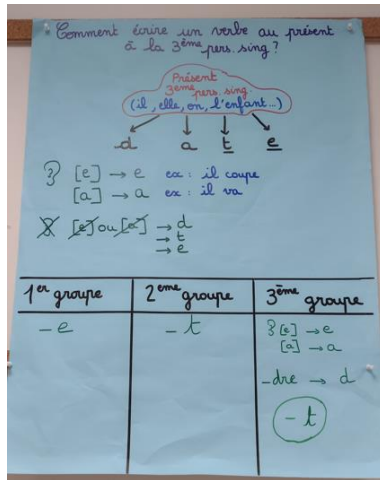 Comment écrire un verbe au présent
à la 3ème pers. sing ?
Présent
3ème pers. sing.
(il, elle, on, l'enfant...)
d a t e
[e] → e ex : il coupe
[a] → a ex : il va
[e] ou [a] → d
→ t
→ e
1er groupe 2ème groupe 3ème groupe
- e - t [e] → e
[a] → a
-dre → d
- t